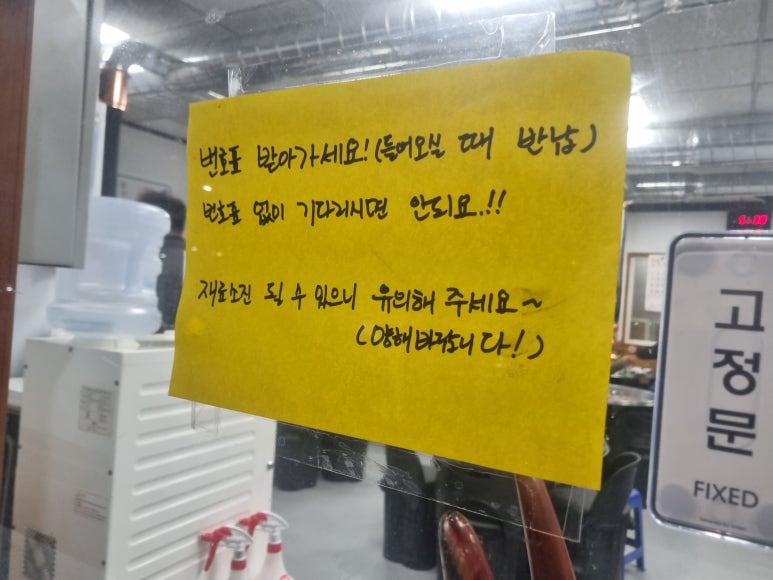 번호표 받아가세요! (들어오실 때 반납)
번호표 없이 기다리시면 안되요.!!
재료소진 될 수 있으니 유의해 주세요~
(양해바랍니다!)
고정문
FIXED